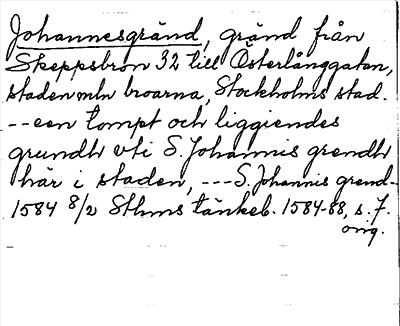 Johannesgränd, gränd från
Skeppsbron 32 till Österlånggatan,
staden mln broarna, Stockholms stad.
--een tompt och liggiendes
grundh vti S. Johannis grendh
här i staden, ---S. Johannis grend-
1584 8/2 Sthms tänkeb. 1584-88, s. 7.
orig.